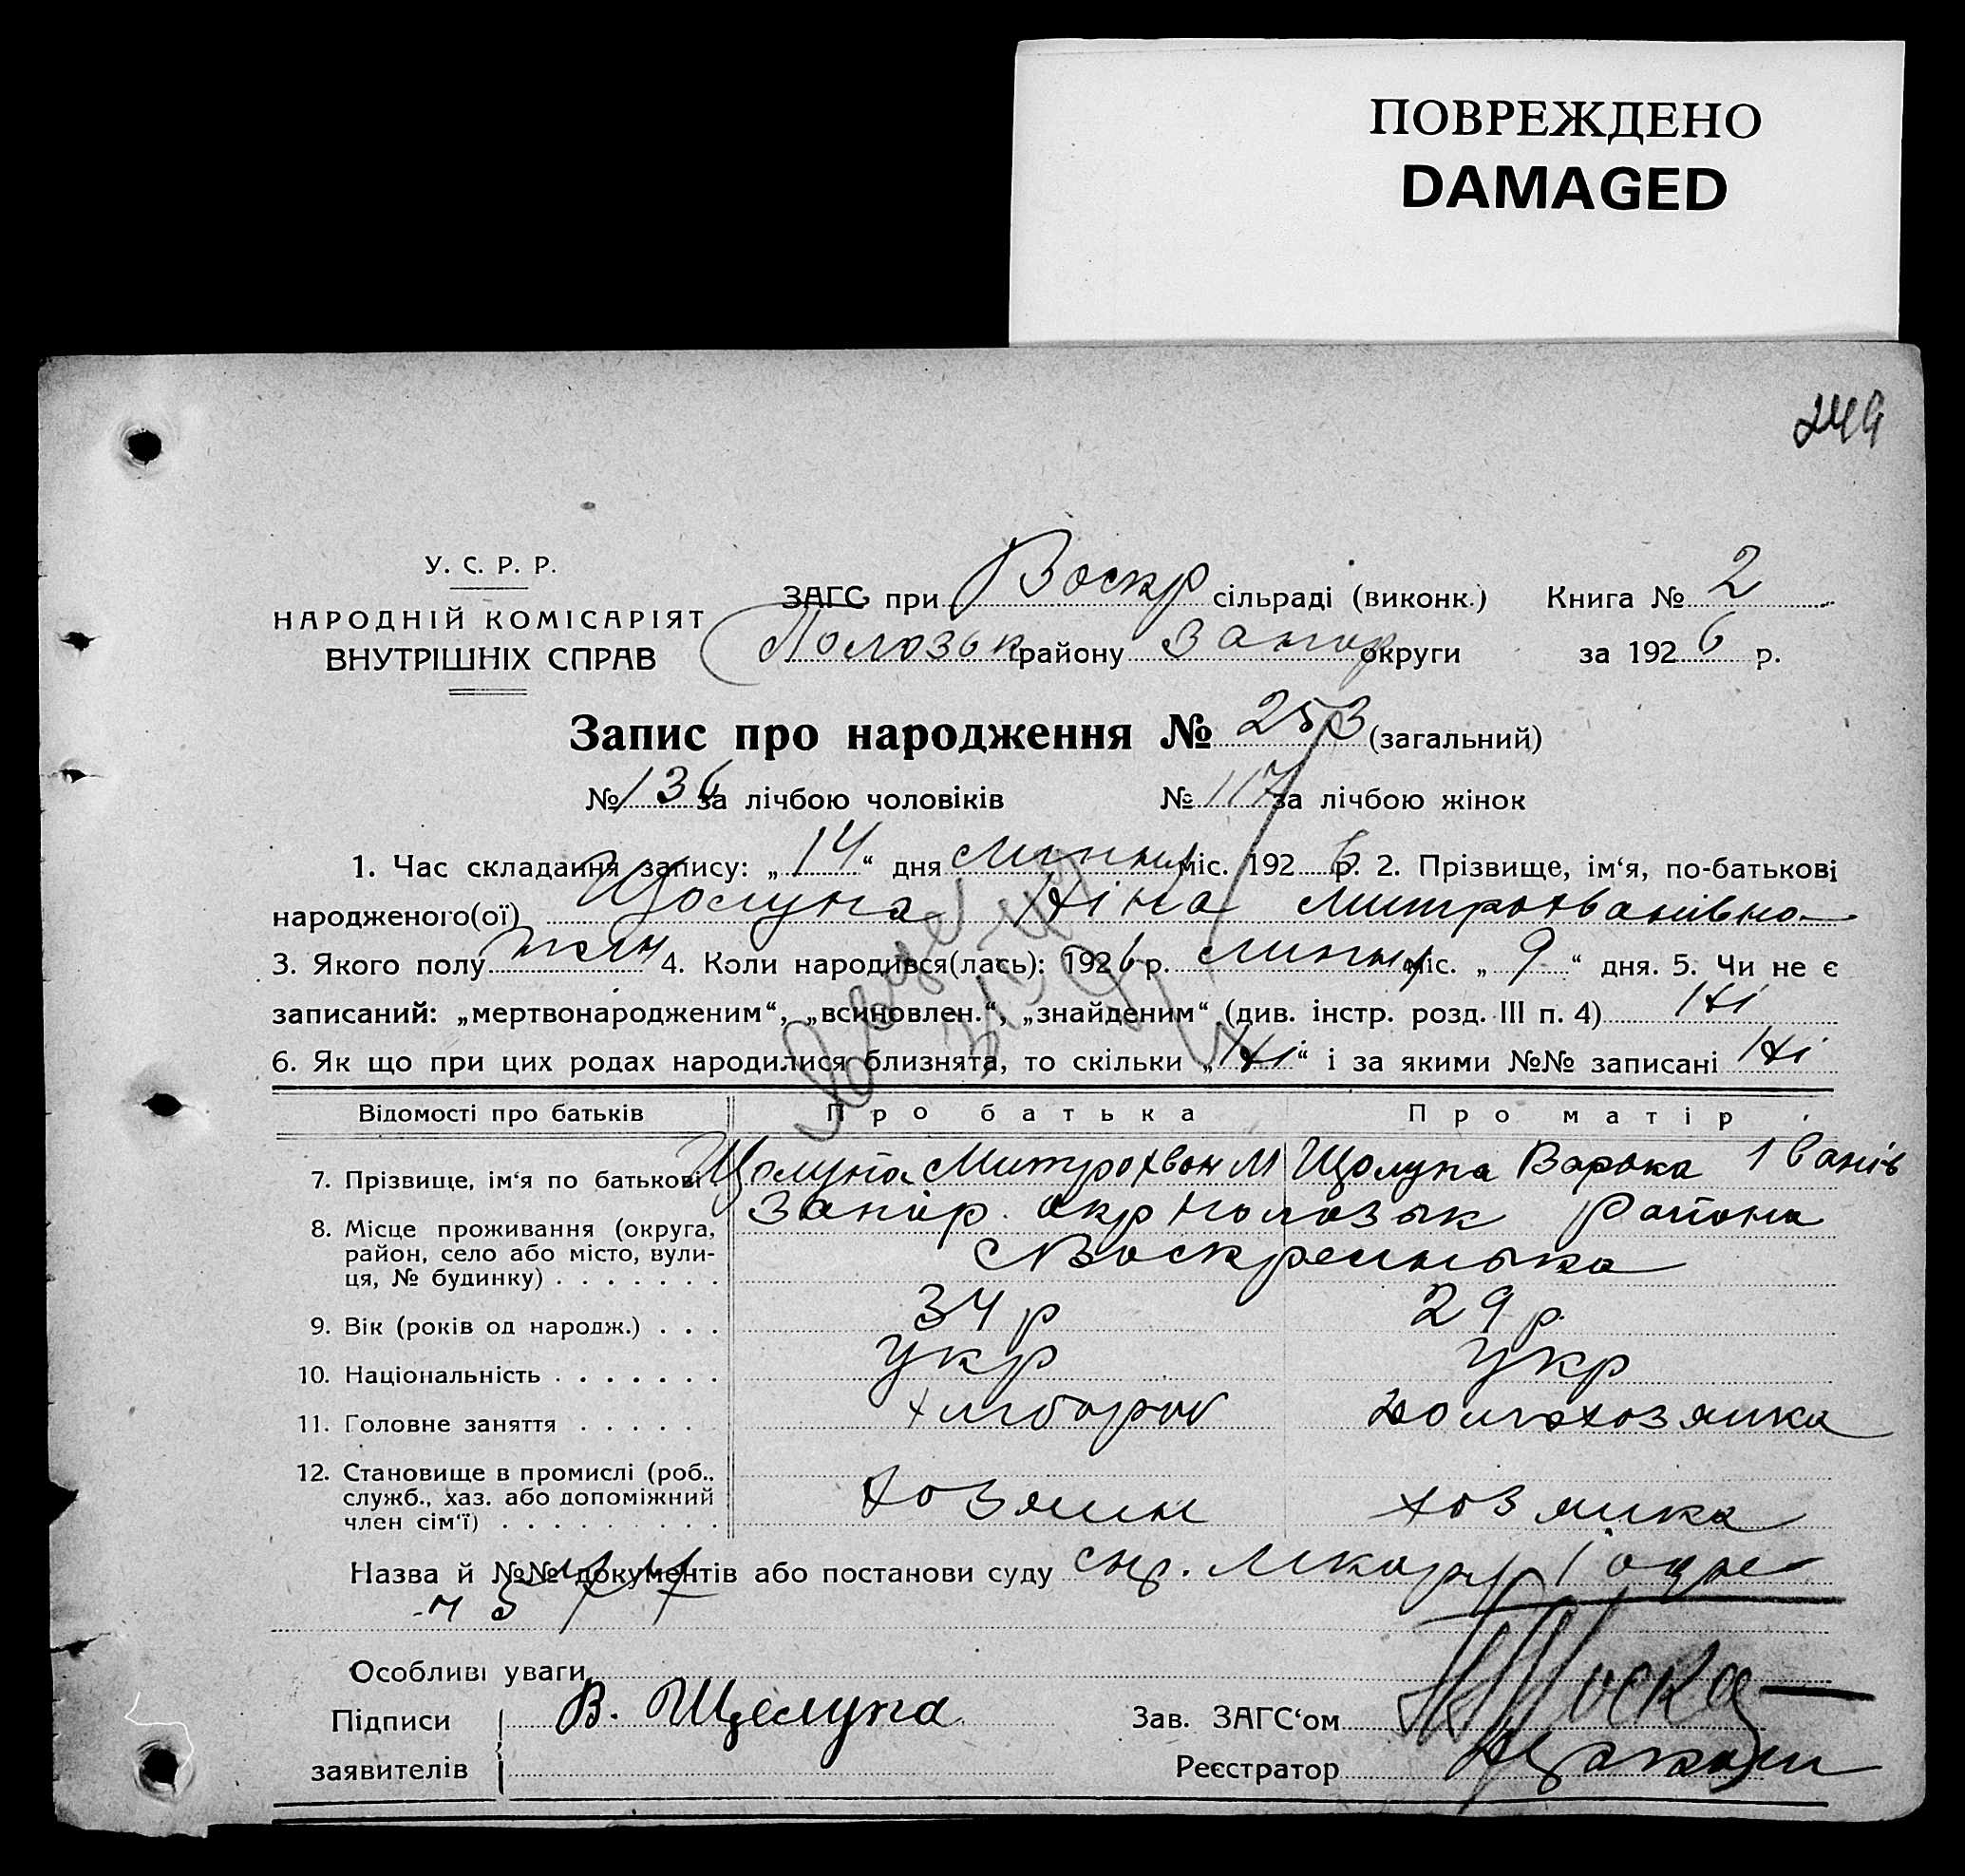 ПОВРЕЖДЕНО
DAMAGED
249
У. С. Р. Р.
НАРОДНІЙ КОМІСАРІЯТ
ВНУТРІШНІХ СПРАВ
ЗАГС при Воскр сільраді (виконк.) Книга № 2
Полозьк району Запор округи за 1926 р.
Запис про народження № 253 (загальний)
№ 136 за лічбою чоловіків № 117 за лічбою жінок
1. Час складання запису: „14“ дня липня міс. 1926 р. 2. Прізвище, ім‘я, по-батькові
народженого(ої) Щолупа Ніна Митрохванівна
3. Якого полу жін 4. Коли народився(лась): 1926 р. липня міс. „9“ дня. 5. Чи не є
записаний: „мертвонародженим“, „всиновлен.“, „знайденим“ (див. інстр. розд. III п. 4) Ні
6. Як що при цих родах народилися близнята, то скільки „Ні“ і за якими №№ записані Ні
Відомості про батьків Про батька Про матір
7. Прізвище, ім‘я по батькові Щолупа Митрохван М Щолупа Варька Іванів
8. Місце проживання (округа, Запор. окр Полозьк Района
район, село або місто, вули- с Воскресенька
ця, № будинку)
9. Вік (років од народж.) 34 р 29 р.
10. Національність укр укр
11. Головне заняття хлібороб домохозяйка
12. Становище в промислі (роб.,
служб., хаз. або допоміжний хозяин хозяйка
член сім‘ї)
Назва й №№ документів або постанови суду
Особливі уваги
Підписи В. Щелупа Зав. ЗАГС‘ом
заявителів Реєстратор